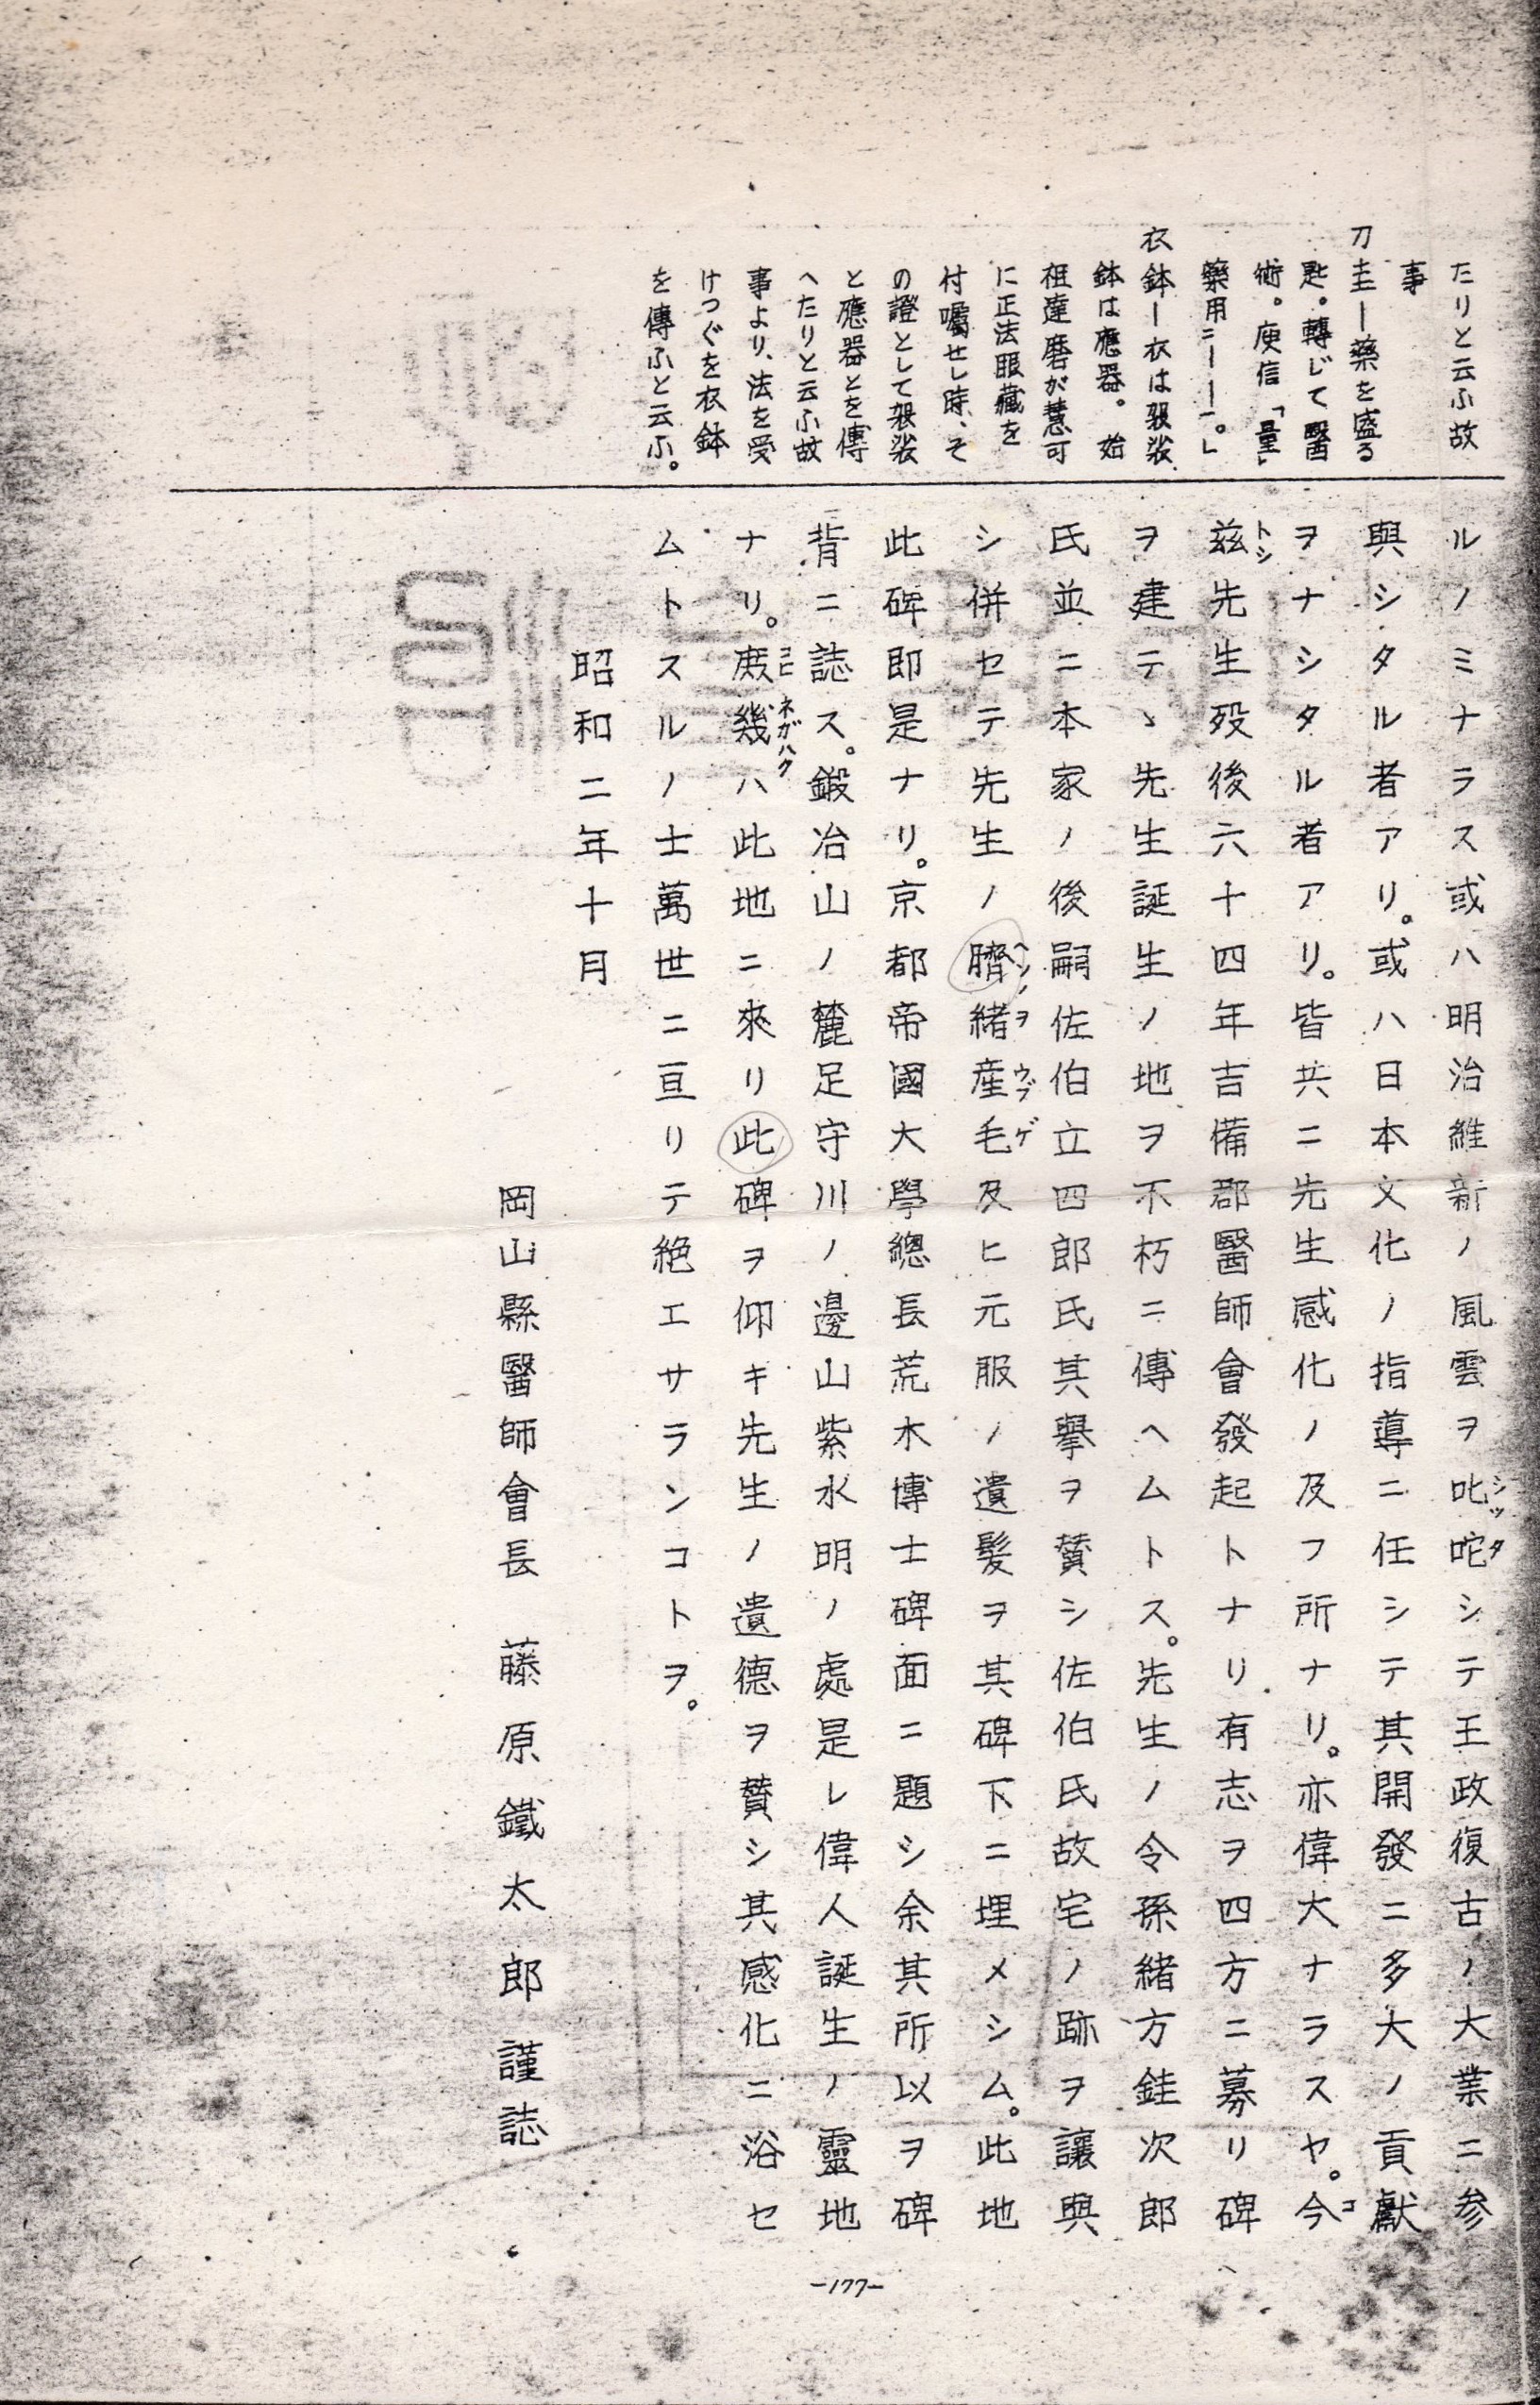 たりと云ふ故
事
刀圭ー藥を盛る
匙。轉じて醫
術。庾信「量」
藥用ニーーー。」
衣鉢ー衣は袈裟
鉢は應器。始
祖達磨が慧可
に正法眼藏を
付囑せし時、そ
の證として袈裟
と應器とを傳
へたりと云ふ故
事より、法を受
けつぐを衣鉢
を傳ふと云ふ。
ルノミナラス或ハ明治維新ノ風雲ヲ叱咤シテ王政復古ノ大業ニ参
シッタ
與シタル者アリ。或ハ日本文化ノ指導ニ任シテ其開發ニ多大ノ貢獻
ヲナシタル者アリ。皆共ニ先生感化ノ及フ所ナリ。亦偉大ナラスヤ。今
コ
トシ
茲先生歿後六十四年吉備郡醫師會發起トナリ有志ヲ四方ニ募リ碑
ヲ建テヽ先生誕生ノ地ヲ不朽ニ傳ヘムトス。先生ノ令孫緒方銈次郎
氏並ニ本家ノ後嗣佐伯立四郎氏其擧ヲ賛シ佐伯氏故宅ノ跡ヲ讓與
ヘソノヲウブゲ
シ併セテ先生ノ臍緒産毛及ヒ元服ノ遺髪ヲ其碑下ニ埋メシム。此地
此碑即是ナリ。京都帝國大學總長荒木博士碑面ニ題シ余其所以ヲ碑
背ニ誌ス。鍛冶山ノ麓足守川ノ邊山紫水明ノ處是レ偉人誕生ノ靈地
コヒネガハク
ナリ。庶幾ハ此地ニ來リ此碑ヲ仰キ先生ノ遺德ヲ賛シ其感化ニ浴セ
ムトスルノ士萬世ニ亘リテ絶エサランコトヲ。
昭和二年十月
岡山縣醫師會長 藤原鐵太郎謹誌
-177-